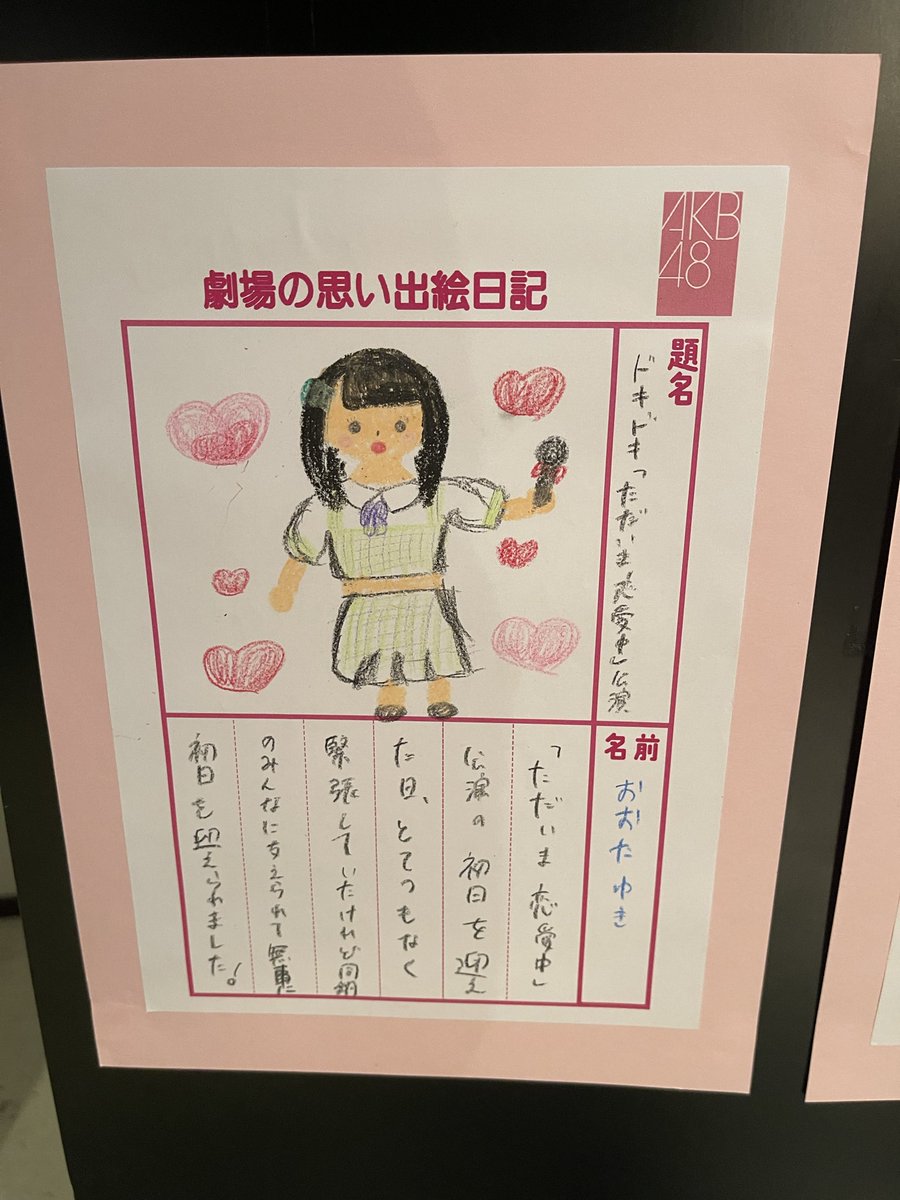 AKB
48
劇場の思い出絵日記
題名
ドキドキ「ただいま恋愛中」公演
名前
おおたゆき
「ただいま 恋愛中」
公演の 初日を迎え
た日、とてつもなく
緊張していたけれど同期
のみんなに支えられて無事に
初日を迎えられました!